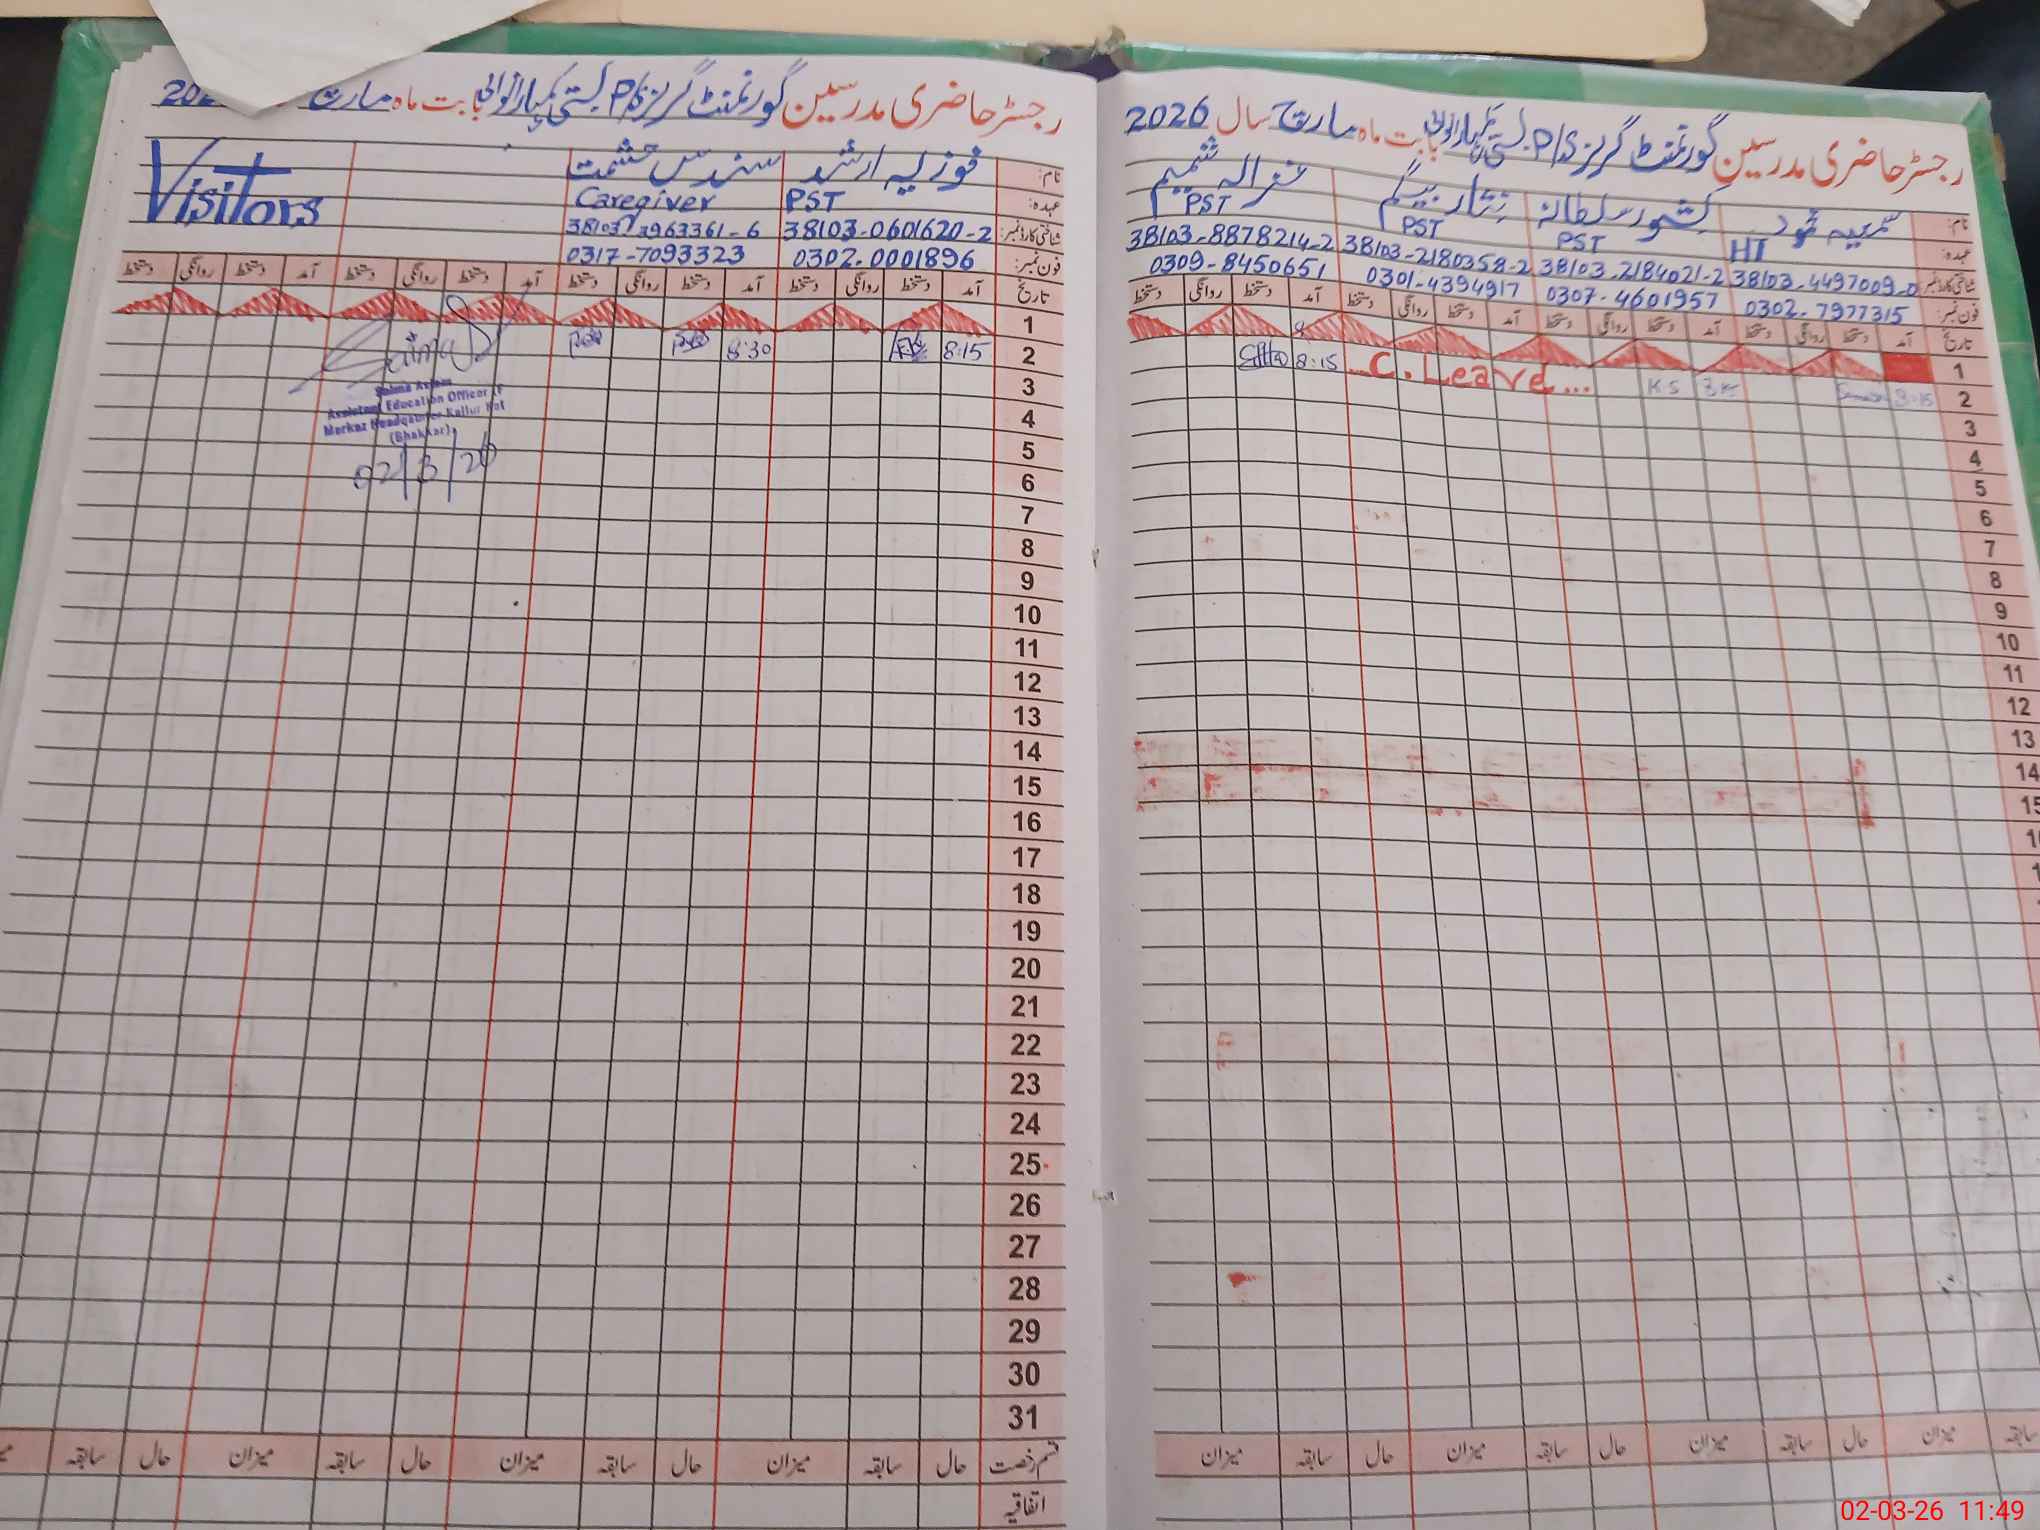 رجسٹر حاضری مدرسین گورنمنٹ گرلز P/S بستی کمہارانوالی بابت ماہ مارچ سال 2026
نام: ثمینہ کشور سلطانہ نثار بیگم غزالہ شمیم
عہدہ: HT PST PST PST
شناختی کارڈ نمبر: 38103-4497009-0 38103-2184021-2 38103-2180358-2 38103-8878214-2
فون نمبر: 0302-7977315 0307-4601957 0301-4394917 0309-8450651
تاریخ آمد دستخط روانگی دستخط آمد دستخط روانگی دستخط آمد دستخط روانگی دستخط آمد دستخط روانگی دستخط
1
2 8:15 K.S C. Leave... 8:15
3
4
5
6
7
8
9
10
11
12
13
14
15
میزان سابقہ حال میزان سابقہ حال میزان سابقہ حال میزان
رجسٹر حاضری مدرسین گورنمنٹ گرلز P/S بستی کمہارانوالی بابت ماہ مارچ
نام: فوزیہ ارشد سندس حشمت Visitors
عہدہ: PST Caregiver
شناختی کارڈ نمبر: 38103-0601620-2 38103-3963361-6
فون نمبر: 0302-0001896 0317-7093323
تاریخ آمد دستخط روانگی دستخط آمد دستخط روانگی دستخط آمد دستخط روانگی دستخط آمد دستخط روانگی دستخط
1
2 8:15 8:30 Saima
3
Assistant Education Officer (F
4 Markaz Headquarter Kallur Kot
(Bhakkar)
5 02/3/26
6
7
8
9
10
11
12
13
14
15
16
17
18
19
20
21
22
23
24
25
26
27
28
29
30
31
قسم رخصت حال سابقہ میزان حال سابقہ میزان حال سابقہ میزان حال سابقہ
اتفاقیہ
02-03-26 11:49